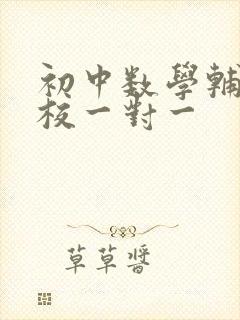 初中数學輔
校一對一
草草醬